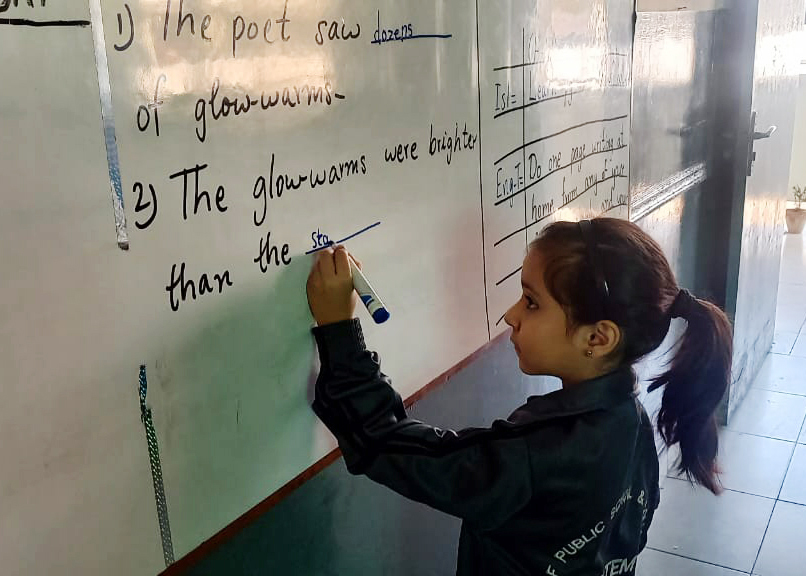 1) The poet saw dozens
of glow-warms-
2) The glow-warms were brighter
than the sta
Isl=
Eng-I= Do one page writing at
home from any of your
and your
PUBLIC SCHOOL &
TEM